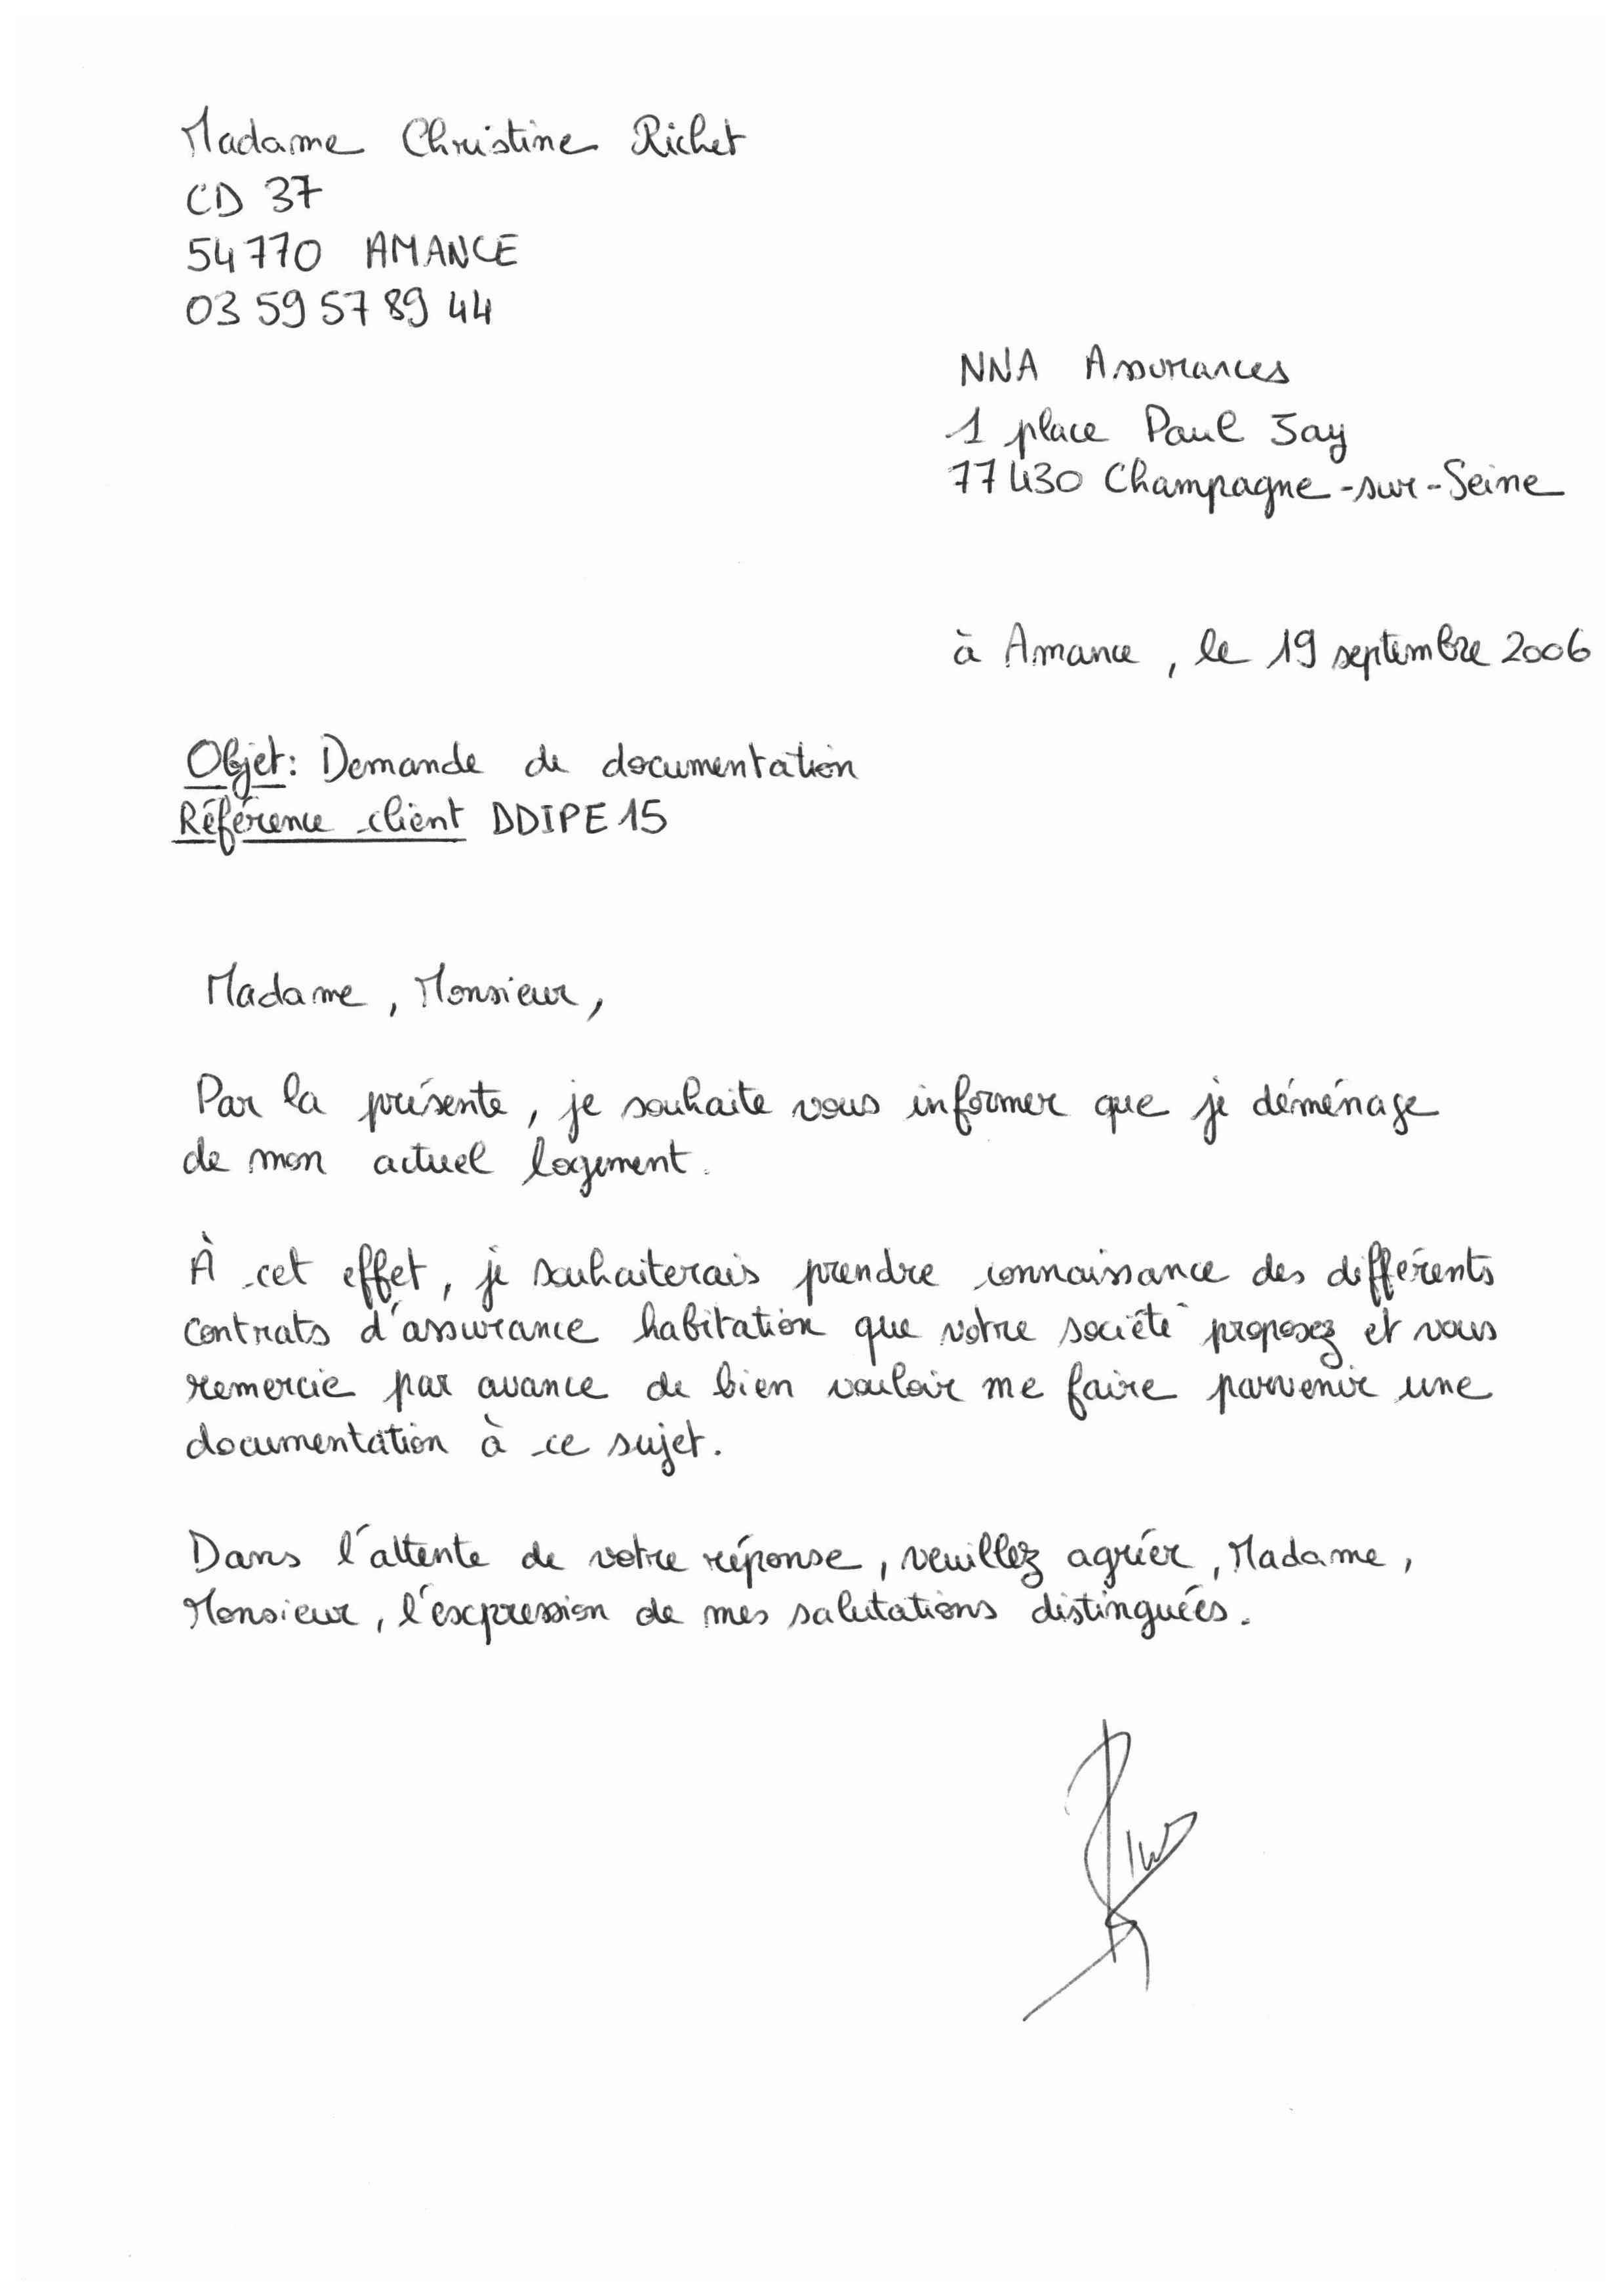 Madame Christine Richet
CD 37
54770 AMANCE
03 59 57 89 44
NNA Assurances
1 place Paul Jay
77430 Champagne-sur-Seine
à Amance, le 19 septembre 2006
Objet: Demande de documentation
Référence client DDIPE15
Madame, Monsieur,
Par la présente, je souhaite vous informer que je déménage
de mon actuel logement.
À cet effet, je souhaiterais prendre connaissance des différents
contrats d'assurance habitation que votre société proposez et vous
remercie par avance de bien vouloir me faire parvenir une
documentation à ce sujet.
Dans l'attente de votre réponse, veuillez agréer, Madame,
Monsieur, l'expression de mes salutations distinguées.